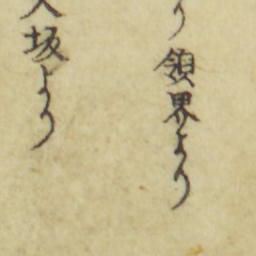 り領界より
大坂より